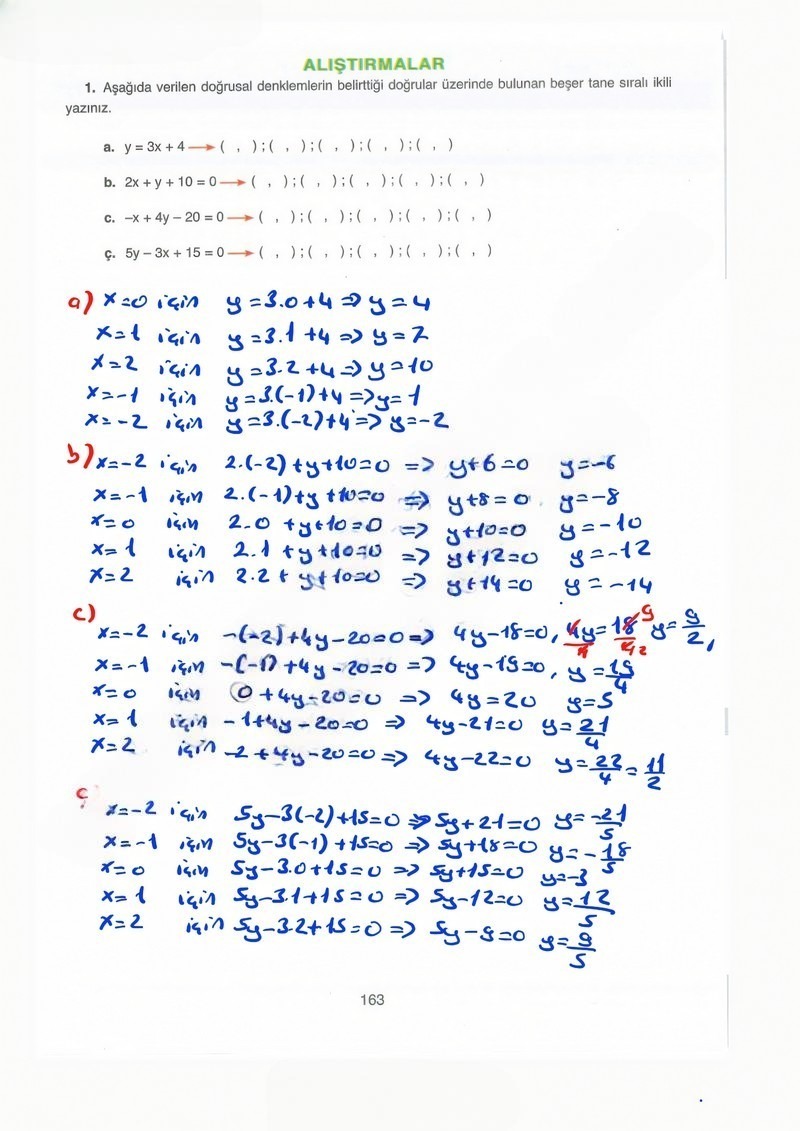 ALIŞTIRMALAR
1. Aşağıda verilen doğrusal denklemlerin belirttiği doğrular üzerinde bulunan beşer tane sıralı ikili
yazınız.
a. y = 3x + 4 → ( , ) ; ( , ) ; ( , ) ; ( , ) ; ( , )
b. 2x + y + 10 = 0 → ( , ) ; ( , ) ; ( , ) ; ( , ) ; ( , )
c. –x + 4y – 20 = 0 → ( , ) ; ( , ) ; ( , ) ; ( , ) ; ( , )
ç. 5y – 3x + 15 = 0 → ( , ) ; ( , ) ; ( , ) ; ( , ) ; ( , )
a) x=0 için y=3.0+4 => y=4
x=1 için y=3.1+4 => y=7
x=2 için y=3.2+4 => y=10
x=-1 için y=3.(-1)+4 => y=1
x=-2 için y=3.(-2)+4 => y=-2
b) x=-2 için 2.(-2)+y+10=0 => y+6=0 y=-6
x=-1 için 2.(-1)+y+10=0 => y+8=0 y=-8
x=0 için 2.0+y+10=0 => y+10=0 y=-10
x=1 için 2.1+y+10=0 => y+12=0 y=-12
x=2 için 2.2+y+10=0 => y+14=0 y=-14
c)
x=-2 için -(-2)+4y-20=0 => 4y-18=0, 4y/4=18/4 9 2 y=9/2,
x=-1 için -(-1)+4y-20=0 => 4y-19=0, y=19/4
x=0 için 0+4y-20=0 => 4y=20 y=5
x=1 için -1+4y-20=0 => 4y-21=0 y=21/4
x=2 için -2+4y-20=0 => 4y-22=0 y=22/4=11/2
ç
x=-2 için 5y-3(-2)+15=0 => 5y+21=0 y=-21/5
x=-1 için 5y-3(-1)+15=0 => 5y+18=0 y=-18/5
x=0 için 5y-3.0+15=0 => 5y+15=0 y=-3
x=1 için 5y-3.1+15=0 => 5y-12=0 y=12/5
x=2 için 5y-3.2+15=0 => 5y-9=0 y=9/5
163